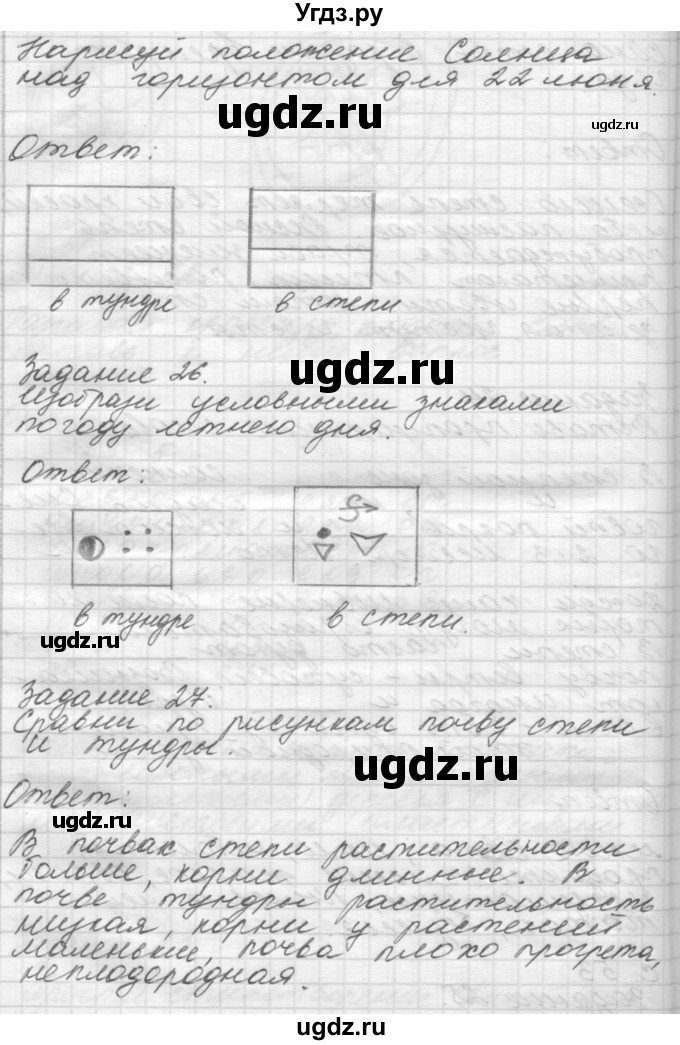 Угдз.ру
Нарисуй положение Солнца
над горизонтом для 22 июня.
ugdz.ru
ugdz.ru
Ответ:
в тундре
в степи
ugdz.ru
Задание 26.
Изобрази условными знаками
погоду летнего дня.
Ответ:
в тундре
в степи.
ugdz.ru
Задание 27.
Сравни по рисункам почву степи
и тундры.
ugdz.ru
Ответ:
ugdz.ru
В почвах степи растительности
больше, корни длинные. В
почве тундры растительность
низкая, корни у растений
маленькие, почва плохо прогрета,
неплодородная.
ugdz.ru